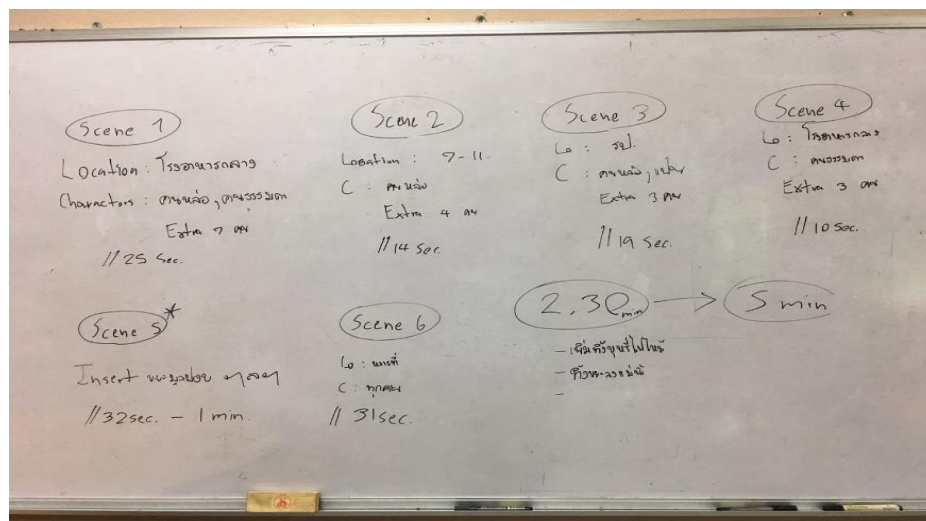 Scene 1
Location : โรงอาหารกลาง
Charactors : คนหล่อ, คนธรรมดา
Extra 7 คน
// 25 Sec.
Scene 2
Location : 7-11
C : คนหล่อ
Extra 4 คน
// 14 Sec.
Scene 3
Lo : รป.
C : คนหล่อ, แปลก
Extra 3 คน
// 19 Sec.
Scene 4
Lo : โรงอาหารกลาง
C : คนธรรมดา
Extra 3 คน
// 10 Sec.
Scene 5*
Insert ขยะมูลฝอย ๆลๆ
// 32sec. - 1 min.
Scene 6
Lo :
C : ทุกคน
// 31sec.
2.30 min → 5 min
- เพิ่มทิ้งบุหรี่ไฟไหม้
- ทิ้งขยะลงแม่น้ำ
-